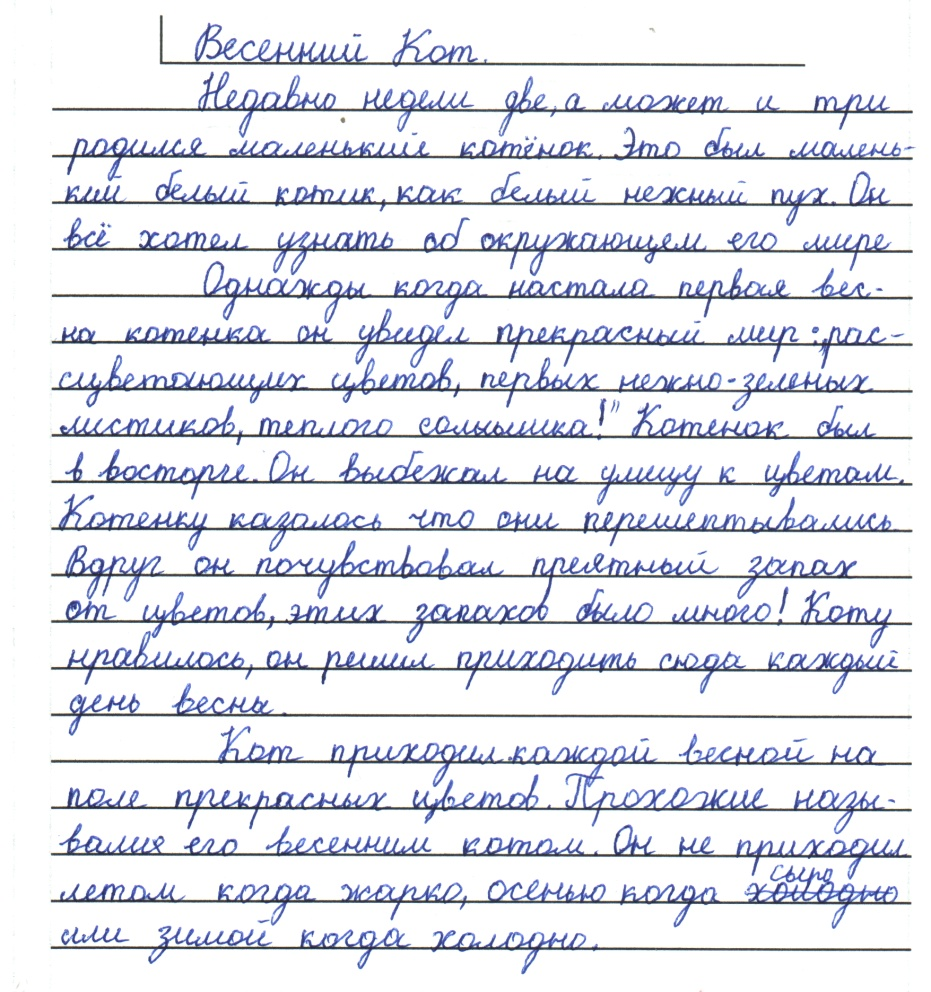 Весенний Кот.
Недавно недели две, а может и три
родился маленький котёнок. Это был малень-
кий белый котик, как белый нежный пух. Он
всё хотел узнать об окружающем его мире
Однажды когда настала первая вес-
на котенка он увидел прекрасный мир: „рас-
сцветающих цветов, первых нежно-зеленых
листиков, теплого солнышка!" Котенок был
в восторге. Он выбежал на улицу к цветам.
Котенку казалось что они перешептывались.
Вдруг он почувствовал преятный запах
от цветов, этих запахов было много! Коту
нравилось, он решил приходить сюда каждый
день весны.
Кот приходил каждой весной на
поле прекрасных цветов. Прохожие назы-
валие его весенним котом. Он не приходил
летом когда жарко, осенью когда сыро холодно
или зимой когда холодно.